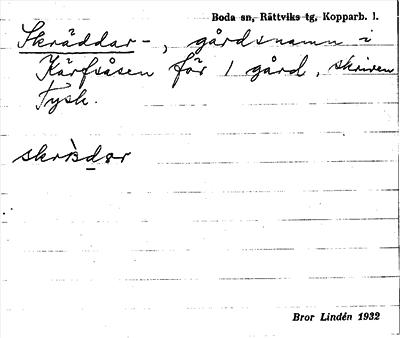 Boda sn, Rättviks tg, Kopparb. l.
Skräddar-, gårdsnamn i
Kärfsåsen för 1 gård, skriven
Tysk.
Bror Lindén 1932